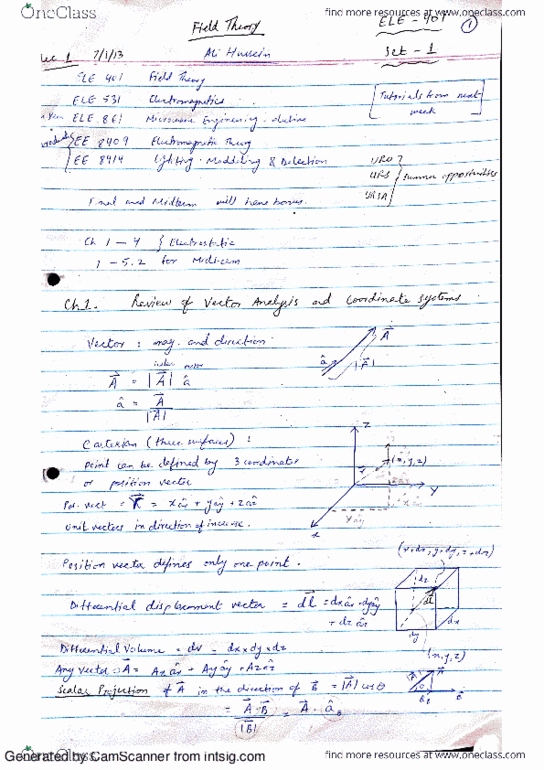 OneClass
find more resources at www.oneclass.com
Field Theory
ELE - 401
1
Lec 1 7/1/13
Ali Hussein
Set - 1
ELE 401 Field Theory
ELE 531 Electromagnetics
ELE 861 Microwave Engineering
EE 8409 Electromagnetic Theory
EE 8414 Lighting: Modelling & Detection
[Tutorials from next week]
URO
summer opportunities
Final and Midterm will have bonus.
Ch 1 - 4 } Electrostatic
1 - 5.2 for Midterm
Ch 1. Review of Vector Analysis and Coordinate systems
Vector : mag. and direction
A⃗ = |A⃗| â
â = A⃗ / |A⃗|
â A⃗ |A⃗|
Cartesian (three surfaces) :
point can be defined by 3 coordinates
or position vector
Pos. vect = R⃗ = xâx + yây + zâz
unit vectors in direction of increase.
z
(x,y,z)
y
x
Position vector defines only one point.
(x+dx, y+dy, z+dz)
Differential displacement vector = dl⃗ = dxâx + dyây
+ dzâz
dz
dl
dx
dy
(x,y,z)
Differential Volume = dv = dx×dy×dz
Any vector A⃗ = Axâx + Ayây + Azâz
Scalar Projection of A⃗ in the direction of B⃗ = |A⃗| cosθ
= A⃗ · B⃗ / |B⃗| = A⃗ · âB
Generated by CamScanner from intsig.com
find more resources at www.oneclass.com